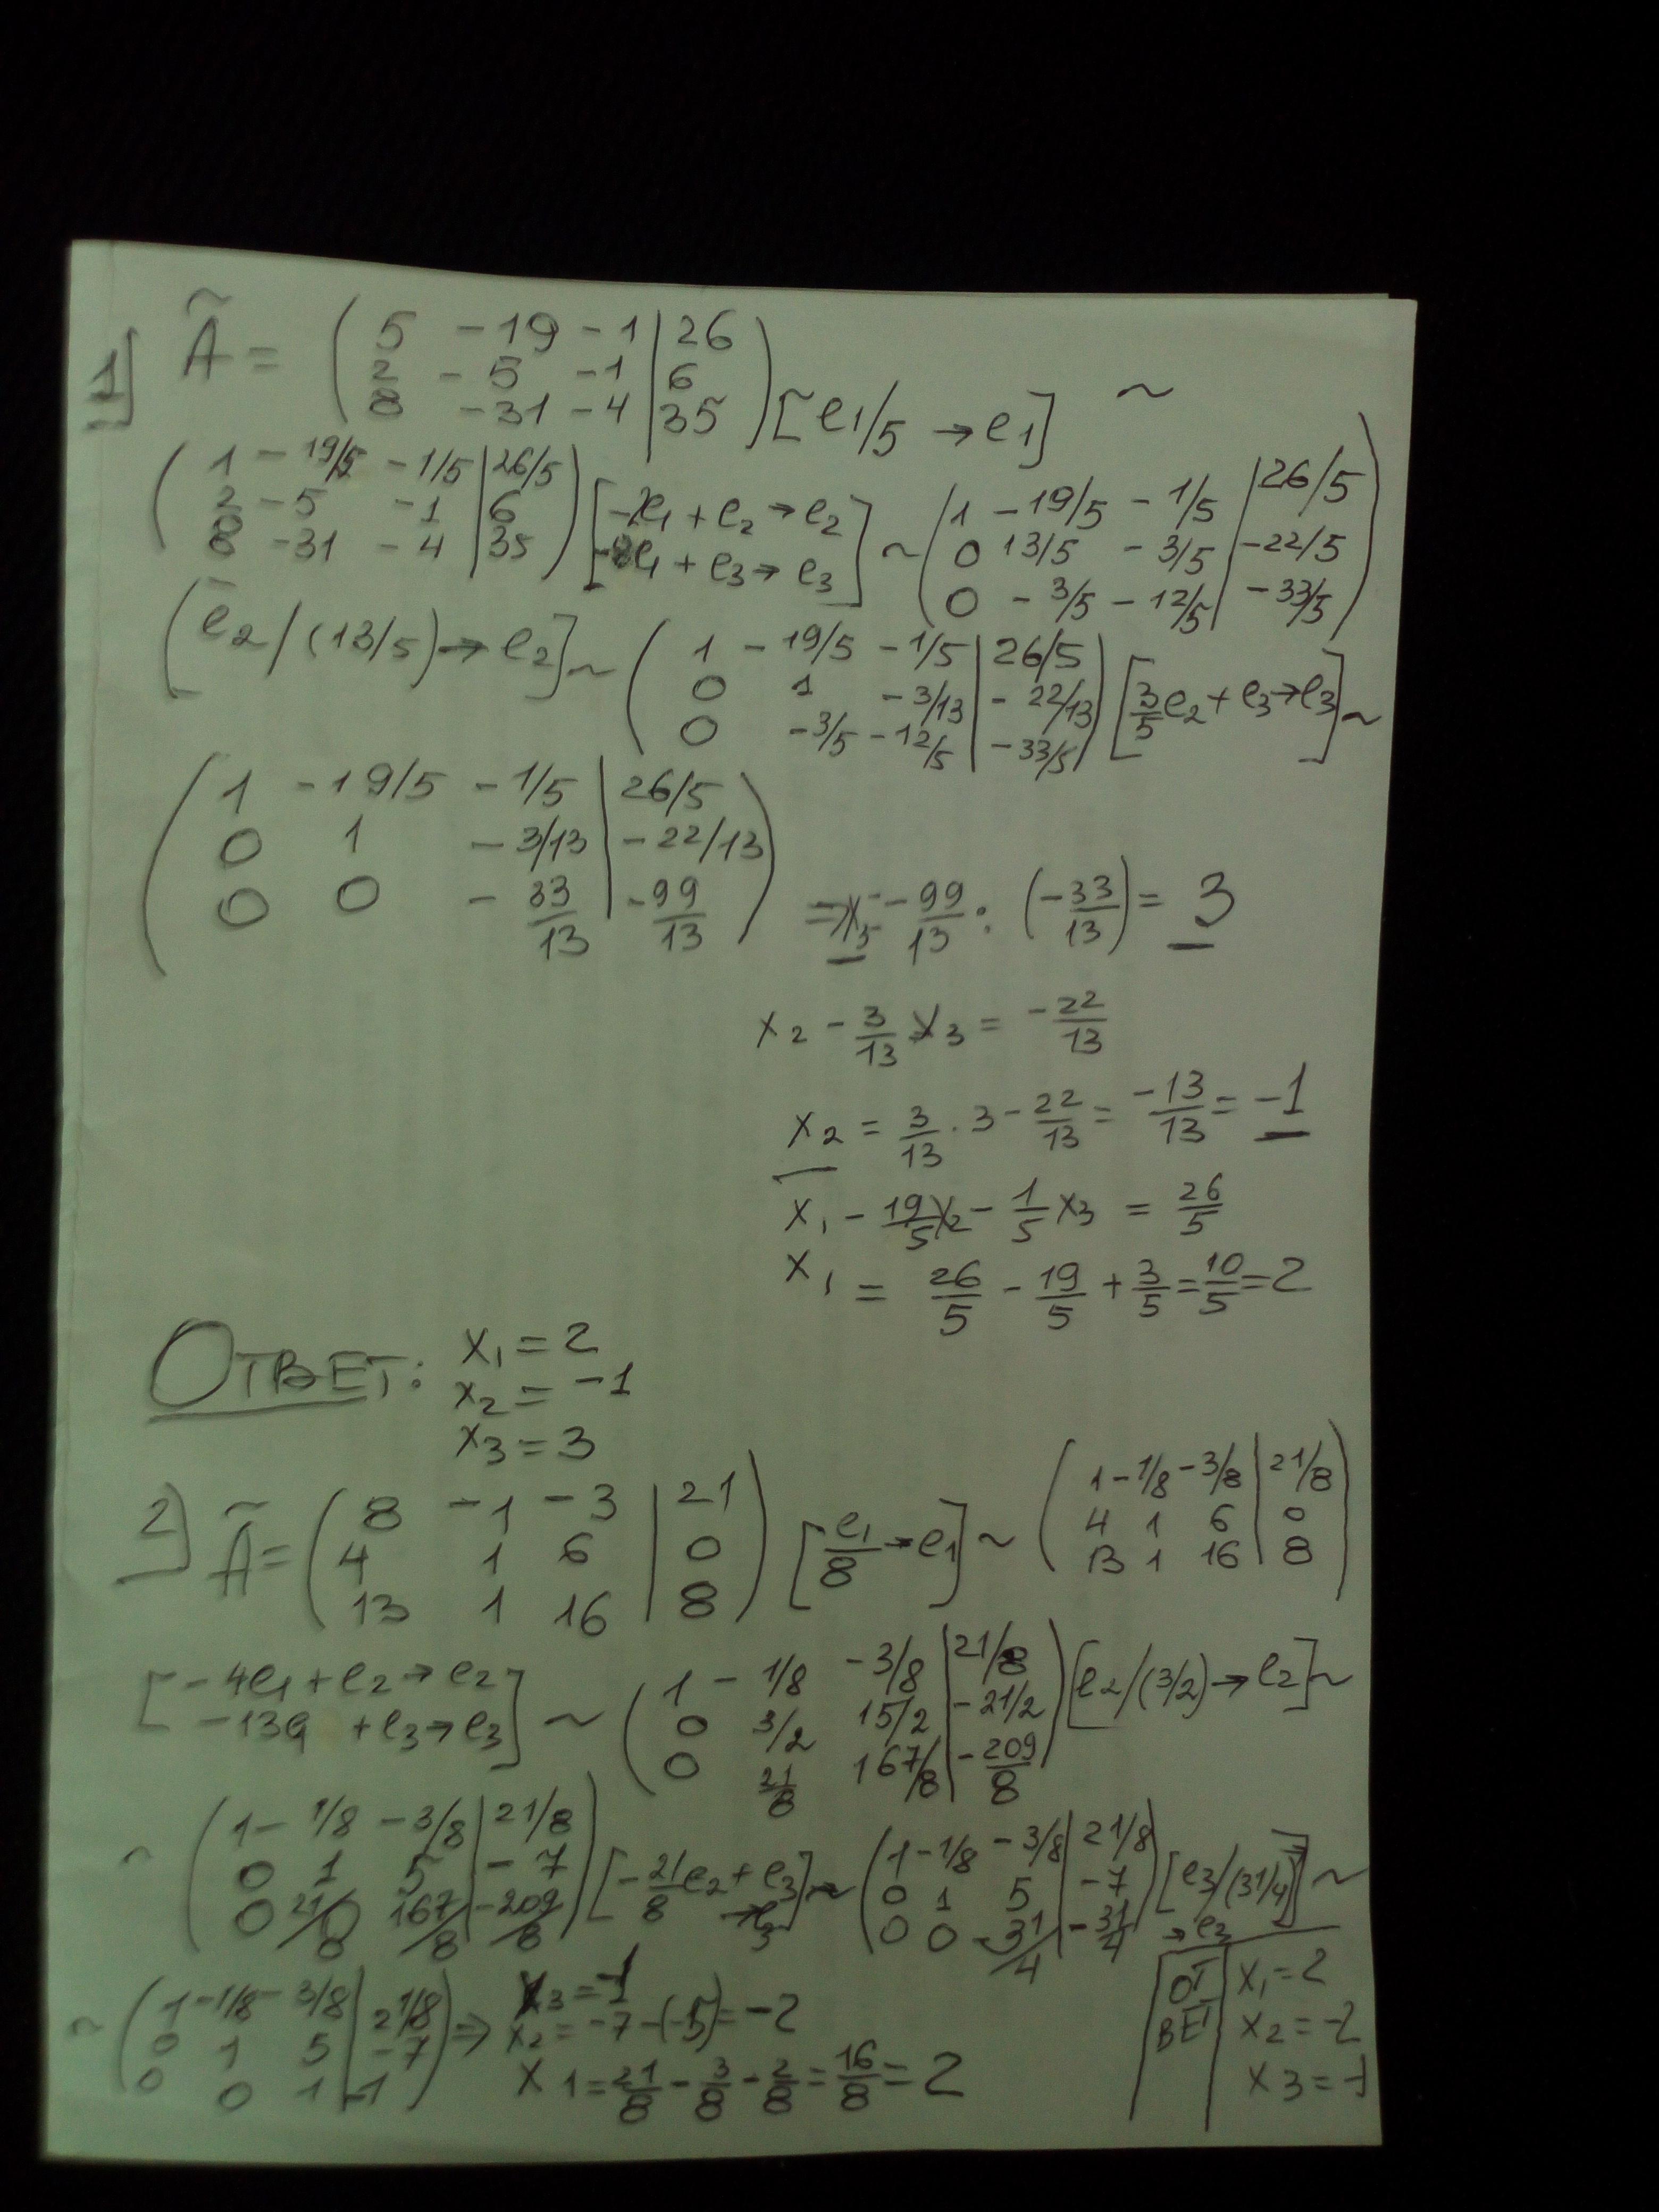 1] Ã = ( 5 -19 -1 | 26
2 -5 -1 | 6
8 -31 -4 | 35 ) [e1/5 → e1] ~
( 1 -19/5 -1/5 | 26/5
2 -5 -1 | 6
8 -31 -4 | 35 ) [ -2e1 + e2 → e2
-8e1 + e3 → e3 ] ~ ( 1 -19/5 -1/5 | 26/5
0 13/5 -3/5 | -22/5
0 -3/5 -12/5 | -33/5 )
[e2/(13/5) → e2] ~ ( 1 -19/5 -1/5 | 26/5
0 1 -3/13 | -22/13
0 -3/5 -12/5 | -33/5 ) [3/5 e2 + e3 → e3] ~
( 1 -19/5 -1/5 | 26/5
0 1 -3/13 | -22/13
0 0 -33/13 | -99/13 )
-99/13 : (-33/13) = 3
x2 - 3/13 x3 = -22/13
x2 = 3/13 · 3 - 22/13 = -13/13 = -1
x1 - 19/5 x2 - 1/5 x3 = 26/5
x1 = 26/5 - 19/5 + 3/5 = 10/5 = 2
ОТВЕТ: x1 = 2
x2 = -1
x3 = 3
2] Ã = ( 8 -1 -3 | 21
4 1 6 | 0
13 1 16 | 8 ) [e1/8 → e1] ~ ( 1 -1/8 -3/8 | 21/8
4 1 6 | 0
13 1 16 | 8 )
[ -4e1 + e2 → e2
-13e1 + e3 → e3 ] ~ ( 1 -1/8 -3/8 | 21/8
0 3/2 15/2 | -21/2
0 21/8 167/8 | -209/8 ) [e2/(3/2) → e2] ~
~ ( 1 -1/8 -3/8 | 21/8
0 1 5 | -7
0 21/8 167/8 | -209/8 ) [-21/8 e2 + e3 → e3] ~ ( 1 -1/8 -3/8 | 21/8
0 1 5 | -7
0 0 31/4 | -31/4 ) [e3/(31/4) → e3] ~
~ ( 1 -1/8 -3/8 | 21/8
0 1 5 | -7
0 0 1 | -1 ) ⇒ x3 = -1
x2 = -7 - (-5) = -2
x1 = 21/8 - 3/8 - 2/8 = 16/8 = 2
ОТ
ВЕТ
x1 = 2
x2 = -2
x3 = -1